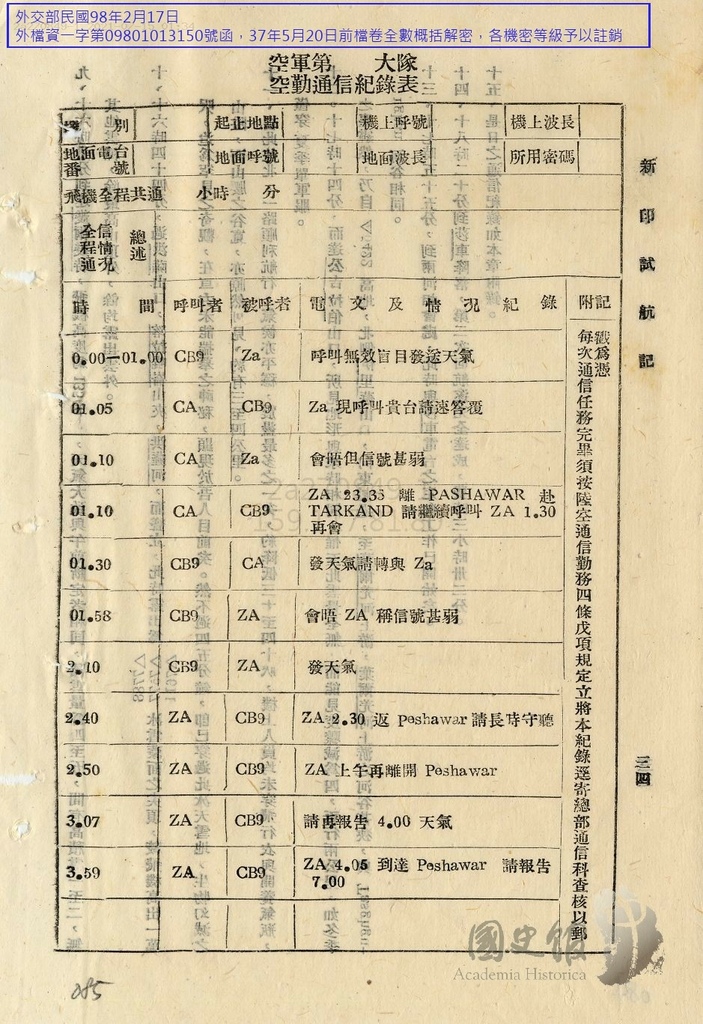 外交部民國98年2月17日
外檔資一字第09801013150號函，37年5月20日前檔卷全數概括解密，各機密等級予以註銷
空軍第　大隊
空勤通信紀錄表
別 起止地點 機上呼號 機上波長
地面電台番號 地面呼號 地面波長 所用密碼
飛機全程共通 小時 分
全程通信情況 總述
時間 呼叫者 被呼者 電文及情況紀錄 附記
0.00—01.00 CB9 Za 呼叫無效盲目發送天氣
01.05 CA CB9 Za 現呼叫貴台請速答覆
01.10 CA Za 會晤但信號甚弱
01.10 CA CB9 ZA 23.35 離 PASHAWAR 赴
TARKAND 請繼續呼叫 ZA 1.30
再會
01.30 CB9 CA 發天氣請轉與 Za
01.58 CB9 ZA 會晤 ZA 稱信號甚弱
2.10 CB9 ZA 發天氣
2.40 ZA CB9 ZA 2.30 返 Peshawar 請長時守聽
2.50 ZA CB9 ZA 上午再離開 Peshawar
3.07 ZA CB9 請再報告 4.00 天氣
3.59 ZA CB9 ZA 4.05 到達 Peshawar 請報告
7.00
每次通信任務完畢須按陸空通信勤務四條戊項規定立將本紀錄逕寄總部通信科查核以郵
戳為憑
新印試航記
三四
國史館
Academia Historica
085